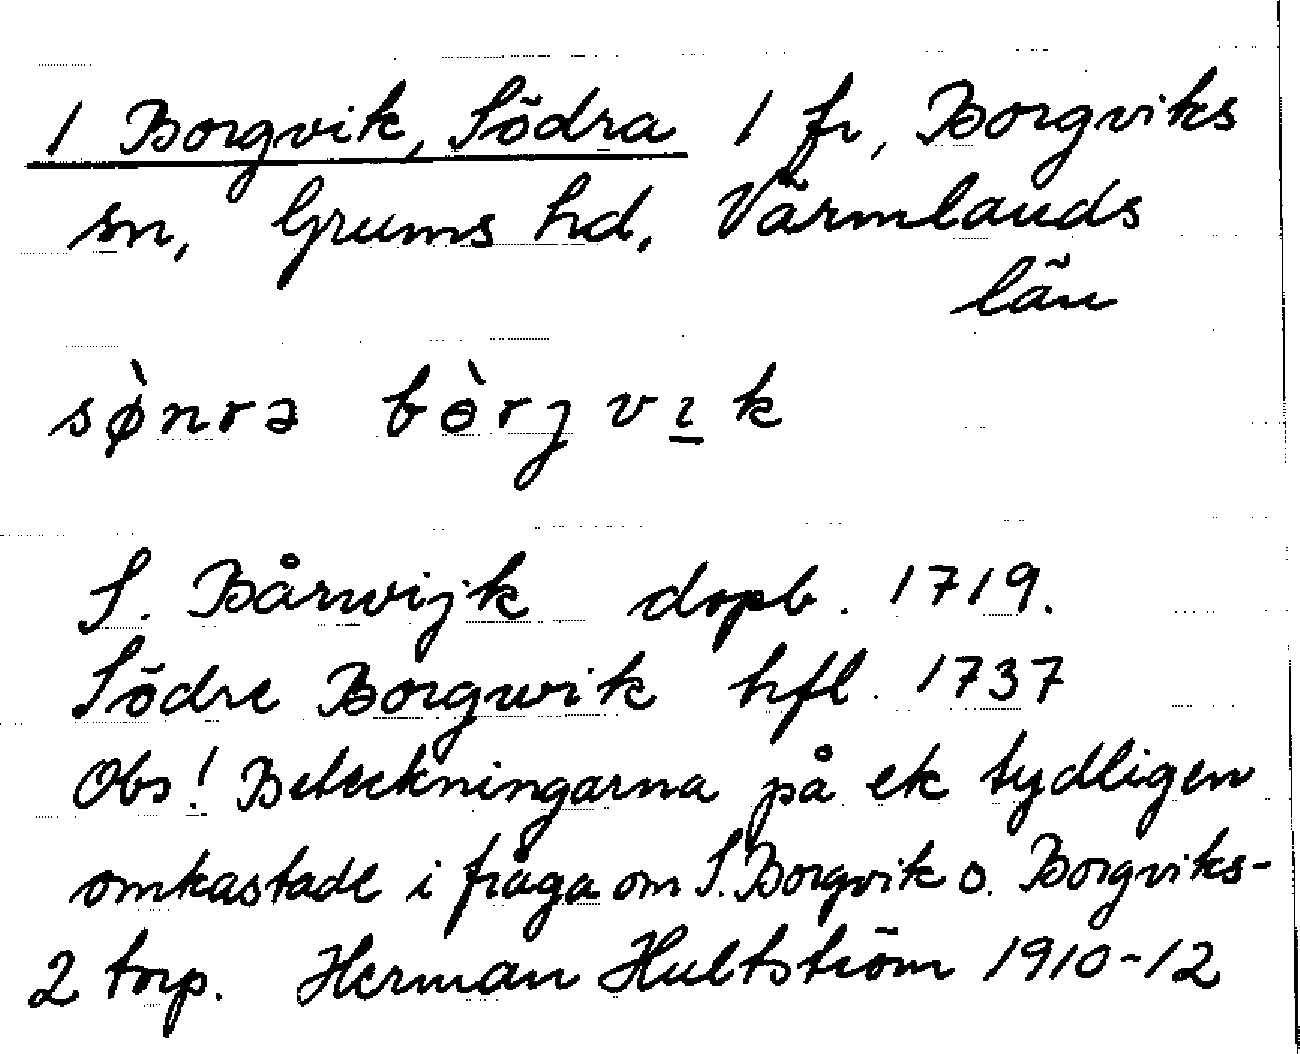 1 Borgvik, Södra 1 fr, Borgviks
sn, Grums hd, Värmlands
län
sø̀nrə bɵ̀rjvɪ̲k
S. Bårwijk dopb. 1719.
Södre Borgwik hfl. 1737
Obs! Beteckningarna på ek tydligen
omkastade i fråga om S. Borgvik o. Borgviks-
2 torp. Herman Hultström 1910-12